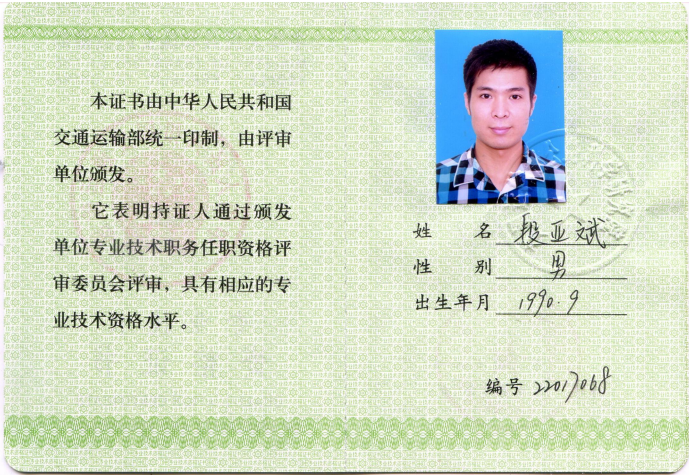 本证书由中华人民共和国
交通运输部统一印制，由评审
单位颁发。
它表明持证人通过颁发
单位专业技术职务任职资格评
审委员会评审，具有相应的专
业技术资格水平。
姓 名 段亚斌
性 别 男
出生年月 1990.9
编号 22017068